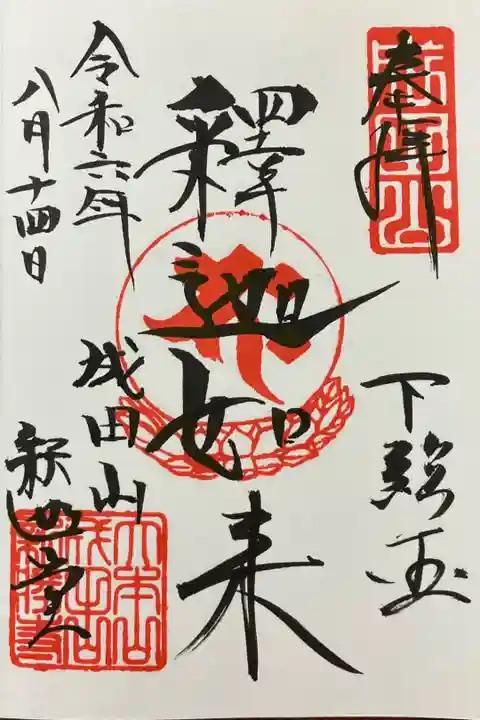 奉拝
下総国
釋迦如来
成田山
釈迦堂
令和六年
八月十四日